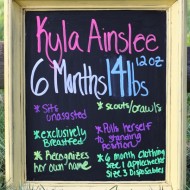 Kyla Ainslee
6 Months 14 lbs 12 oz
* Sits unassisted
* scoots/crawls
* exclusively Breastfed
* Pulls herself to standing position
* Recognizes her own name
* 6 month clothing
Size 1
Size 3 Disposables